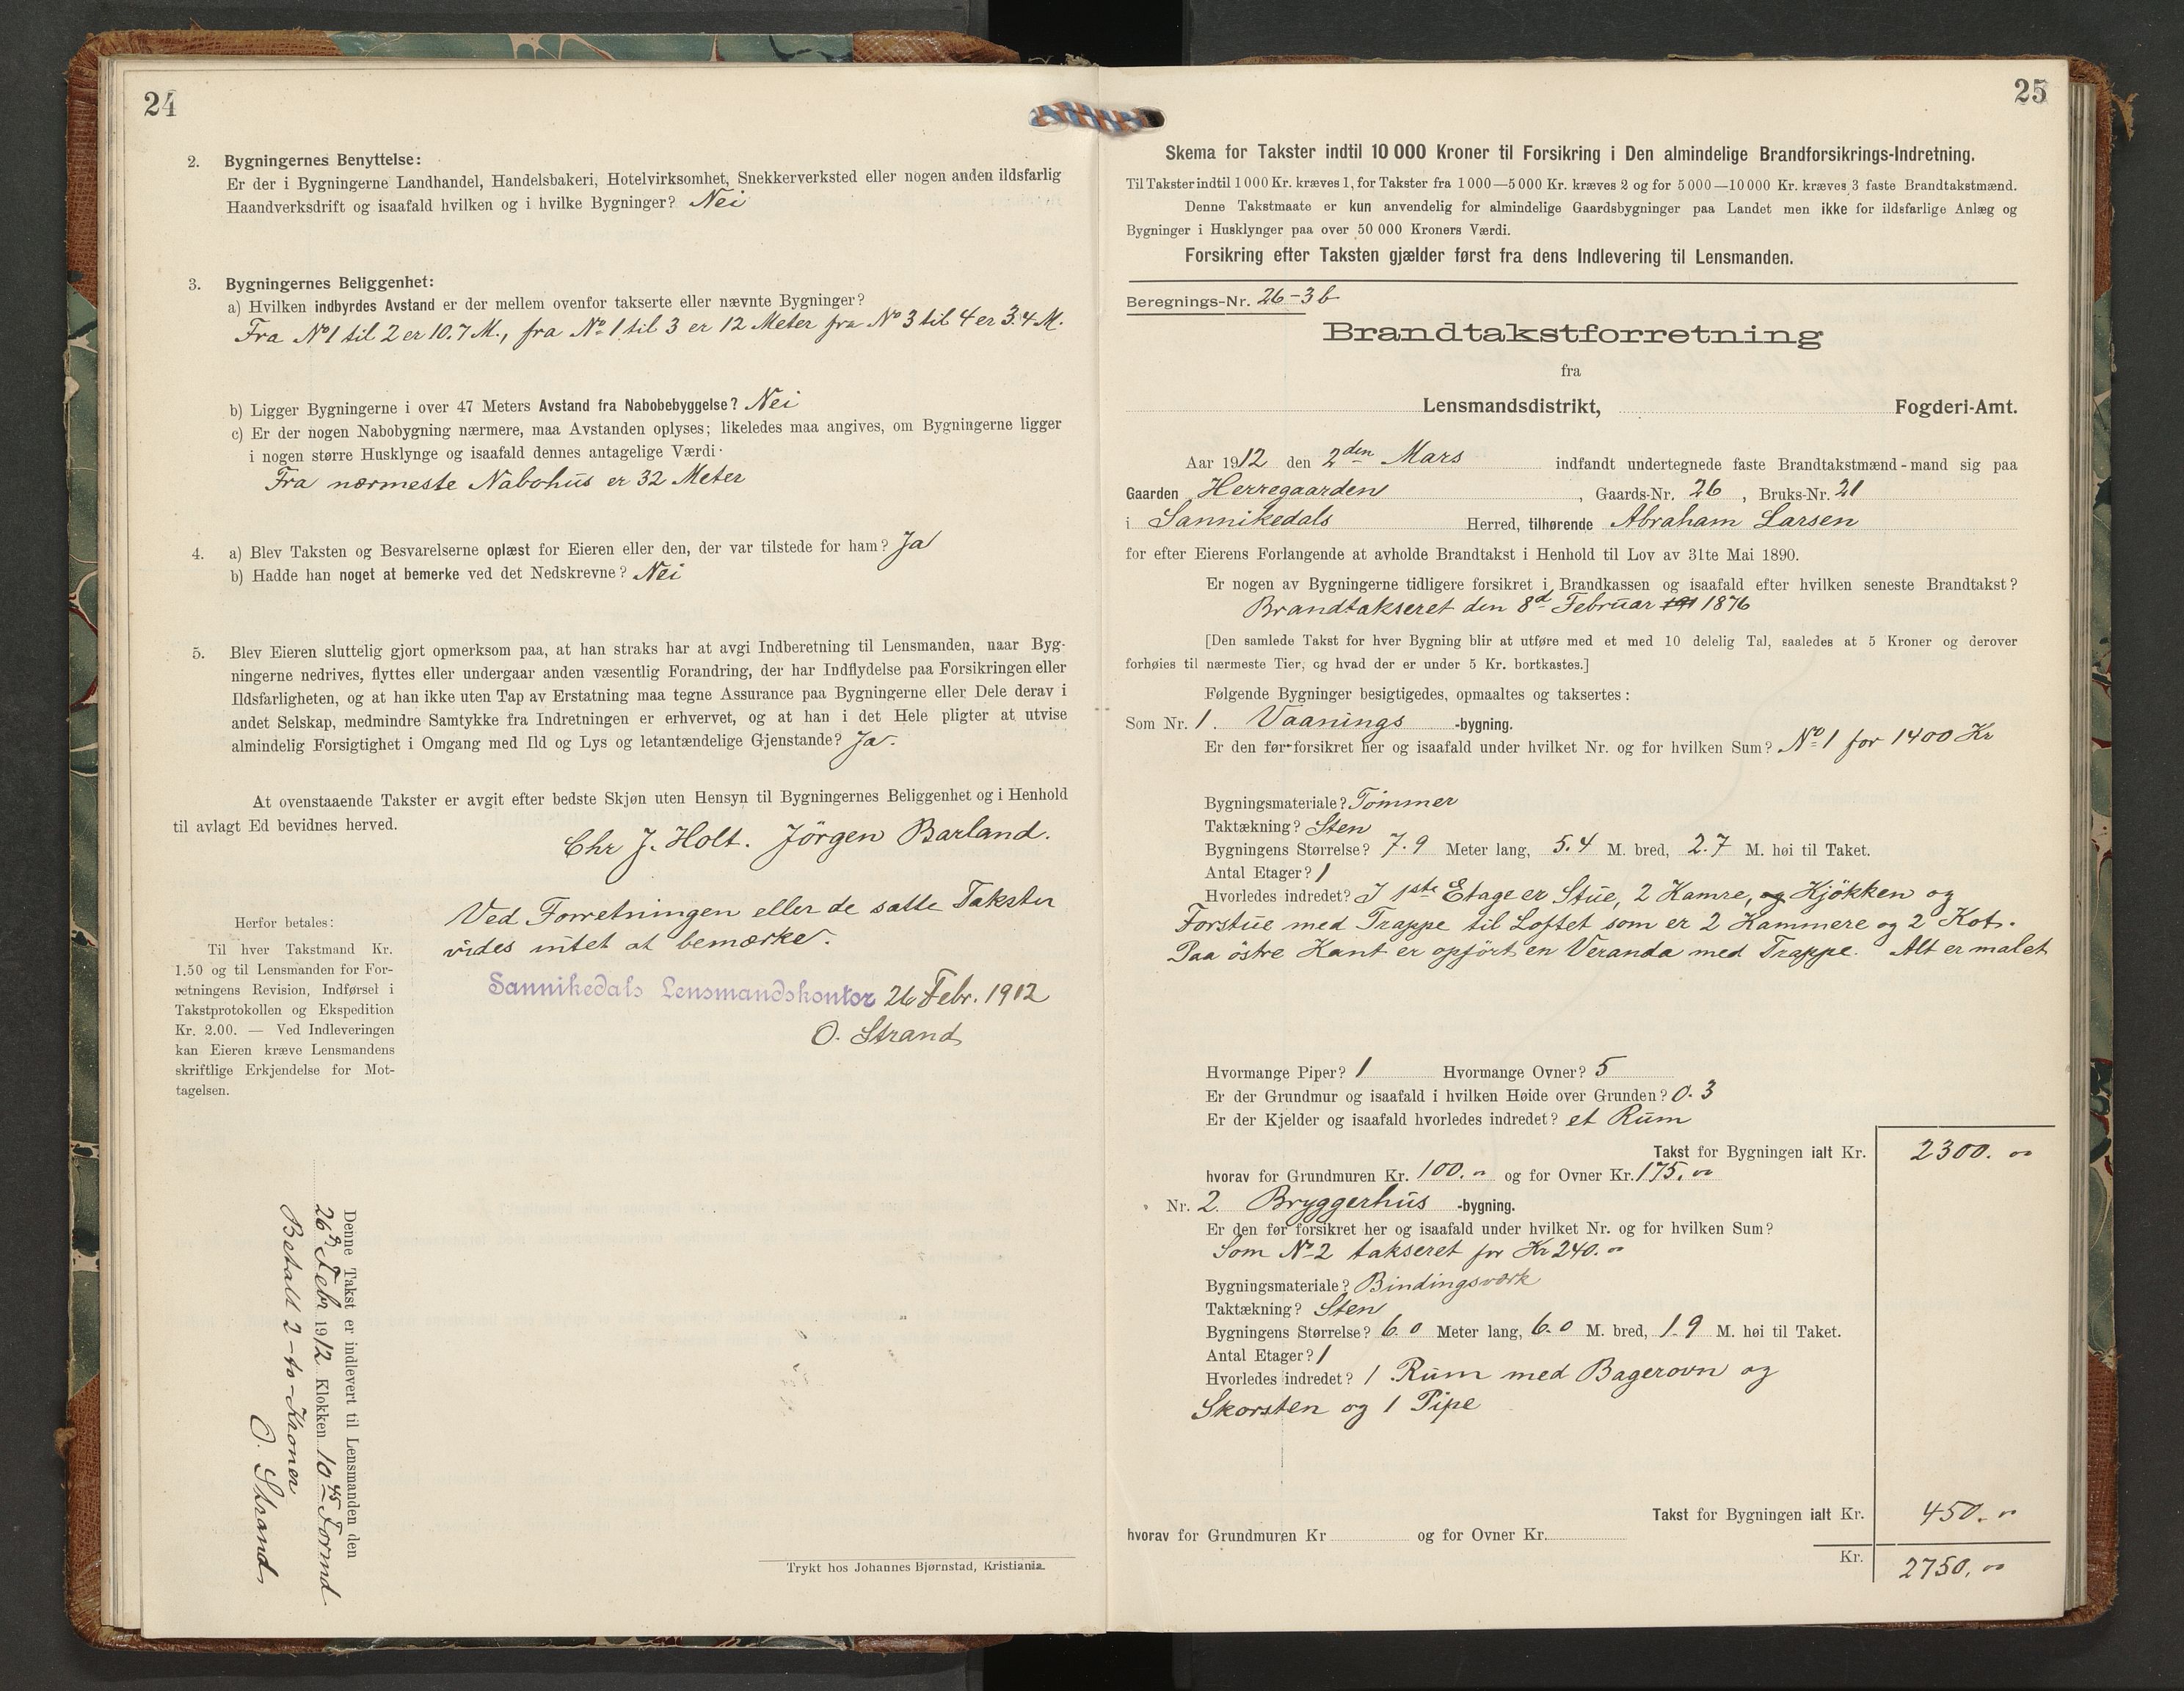 24
2. Bygningernes Benyttelse:
Er der i Bygningerne Landhandel, Handelsbakeri, Hotelvirksomhet, Snekkerverksted eller nogen anden ildsfarlig
Haandverksdrift og isaafald hvilken og i hvilke Bygninger? Nei
3. Bygningernes Beliggenhet:
a) Hvilken indbyrdes Avstand er der mellem ovenfor takserte eller nævnte Bygninger?
Fra No 1 til 2 er 10.7 M., fra No 1 til 3 er 12 Meter fra No 3 til 4 er 3.4 M.
b) Ligger Bygningerne i over 47 Meters Avstand fra Nabobebyggelse? Nei
c) Er der nogen Nabobygning nærmere, maa Avstanden oplyses; likeledes maa angives, om Bygningerne ligger
i nogen større Husklynge og isaafald dennes antagelige Værdi.
Fra nærmeste Nabohus er 32 Meter
4. a) Blev Taksten og Besvarelserne oplæst for Eieren eller den, der var tilstede for ham? Ja
b) Hadde han noget at bemerke ved det Nedskrevne? Nei
5. Blev Eieren sluttelig gjort opmerksom paa, at han straks har at avgi Indberetning til Lensmanden, naar Byg-
ningerne nedrives, flyttes eller undergaar anden væsentlig Forandring, der har Indflydelse paa Forsikringen eller
Ildsfarligheten, og at han ikke uten Tap av Erstatning maa tegne Assurance paa Bygningerne eller Dele derav i
andet Selskap, medmindre Samtykke fra Indretningen er erhvervet, og at han i det Hele pligter at utvise
almindelig Forsigtighet i Omgang med Ild og Lys og letantændelige Gjenstande? Ja.
At ovenstaaende Takster er avgit efter bedste Skjøn uten Hensyn til Bygningernes Beliggenhet og i Henhold
til avlagt Ed bevidnes herved.
Chr J. Holt. Jörgen Barland.
Ved Forretningen eller de satte Takster
vides intet at bemærke.
Sannikedals Lensmandskontor 26 Febr. 1912
O. Strand
Herfor betales:
Til hver Takstmand Kr.
1.50 og til Lensmanden for For-
retningens Revision, Indførsel i
Takstprotokollen og Ekspedition
Kr. 2.00. — Ved Indleveringen
kan Eieren kræve Lensmandens
skriftlige Erkjendelse for Mot-
tagelsen.
Denne Takst er indlevert til Lensmanden den
26d Febr 1912 Klokken 10 45 Formd
Betalt 2 - to - Kroner
O. Strand
Trykt hos Johannes Bjørnstad, Kristiania.
25
Skema for Takster indtil 10 000 Kroner til Forsikring i Den almindelige Brandforsikrings-Indretning.
Til Takster indtil 1000 Kr. kræves 1, for Takster fra 1000—5000 Kr. kræves 2 og for 5000—10000 Kr. kræves 3 faste Brandtakstmænd.
Denne Takstmaate er kun anvendelig for almindelige Gaardsbygninger paa Landet men ikke for ildsfarlige Anlæg og
Bygninger i Husklynger paa over 50 000 Kroners Værdi.
Forsikring efter Taksten gjælder først fra dens Indlevering til Lensmanden.
Beregnings-Nr. 26-3b
Brandtakstforretning
fra
Lensmandsdistrikt, Fogderi-Amt.
Aar 1912 den 2den Mars indfandt undertegnede faste Brandtakstmænd-mand sig paa
Gaarden Herregaarden, Gaards-Nr. 26, Bruks-Nr. 21
i Sannikedals Herred, tilhørende Abraham Larsen
for efter Eierens Forlangende at avholde Brandtakst i Henhold til Lov av 31te Mai 1890.
Er nogen av Bygningerne tidligere forsikret i Brandkassen og isaafald efter hvilken seneste Brandtakst?
Brandtakseret den 8d Februar 191 1876
[Den samlede Takst for hver Bygning blir at utføre med et med 10 delelig Tal, saaledes at 5 Kroner og derover
forhøies til nærmeste Tier, og hvad der er under 5 Kr. bortkastes.]
Følgende Bygninger besigtigedes, opmaaltes og taksertes:
Som Nr. 1. Vaanings -bygning.
Er den før forsikret her og isaafald under hvilket Nr. og for hvilken Sum? No 1 for 1400 Kr
Bygningsmateriale? Tömmer
Taktækning? Sten
Bygningens Størrelse? 7.9 Meter lang, 5.4 M. bred, 2.7 M. høi til Taket.
Antal Etager? 1
Hvorledes indredet? I 1ste Etage er Stue, 2 Kamre, og Kjökken og
Forstue med Trappe til Loftet som er 2 Kammere og 2 Kot.
Paa östre Kant er opfört en Veranda med Trappe. Alt er malet
Hvormange Piper? 1 Hvormange Ovner? 5
Er der Grundmur og isaafald i hvilken Høide over Grunden? 0.3
Er der Kjelder og isaafald hvorledes indredet? et Rum
Takst for Bygningen ialt Kr. 2300.00
hvorav for Grundmuren Kr. 100.00 og for Ovner Kr. 175.00
Nr. 2. Bryggerhus -bygning.
Er den før forsikret her og isaafald under hvilket Nr. og for hvilken Sum?
Som No 2 takseret for Kr 240.00
Bygningsmateriale? Bindingsværk
Taktækning? Sten
Bygningens Størrelse? 6.0 Meter lang, 6.0 M. bred, 1.9 M. høi til Taket.
Antal Etager? 1
Hvorledes indredet? 1 Rum med Bagerovn og
Skorsten og 1 Pipe
Takst for Bygningen ialt Kr. 450.00
hvorav for Grundmuren Kr og for Ovner Kr.
Kr. 2750.00